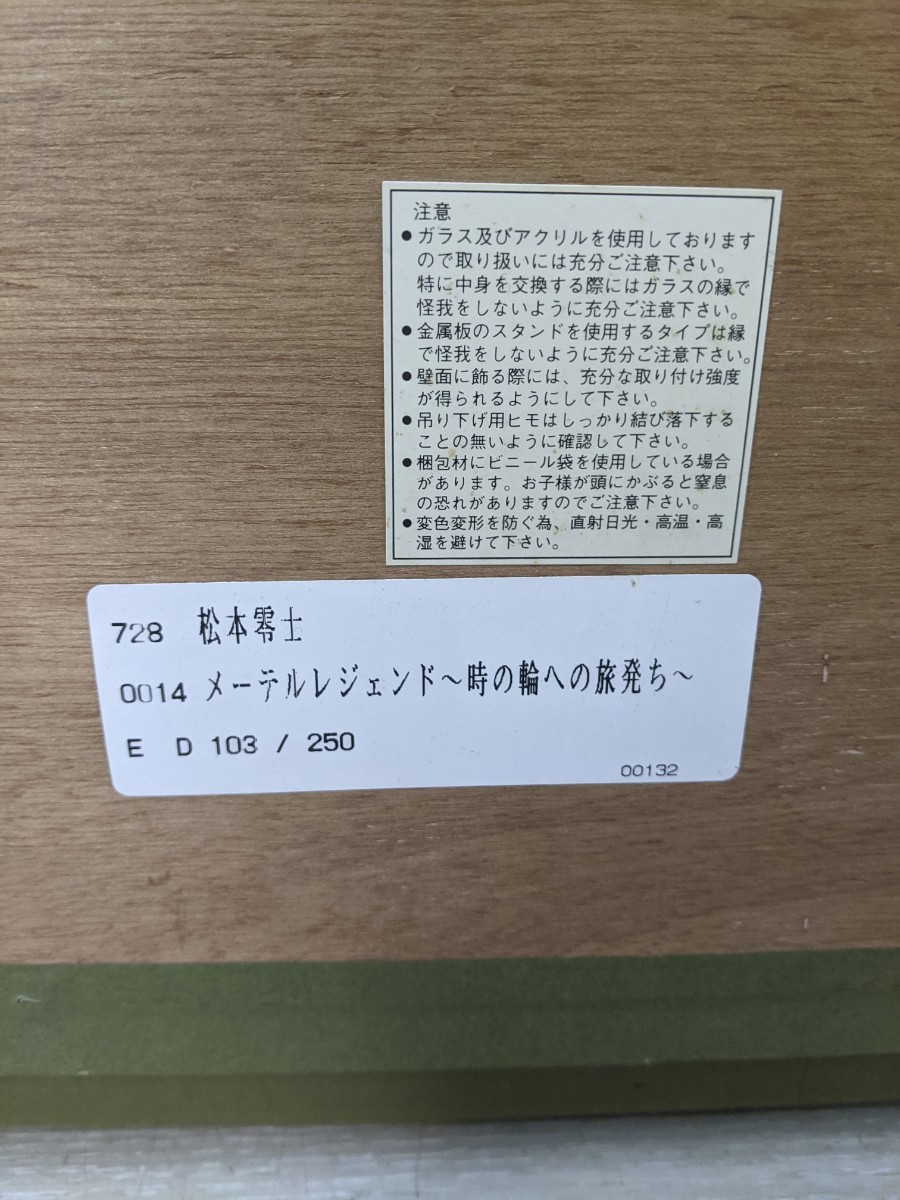 注意
●ガラス及びアクリルを使用しております
ので取り扱いには充分ご注意下さい。
特に中身を交換する際にはガラスの縁で
怪我をしないように充分ご注意下さい。
●金属板のスタンドを使用するタイプは縁
で怪我をしないように充分ご注意下さい。
●壁面に飾る際には、充分な取り付け強度
が得られるようにして下さい。
●吊り下げ用ヒモはしっかり結び落下する
ことの無いように確認して下さい。
●梱包材にビニール袋を使用している場合
があります。お子様が頭にかぶると窒息
の恐れがありますのでご注意下さい。
●変色変形を防ぐ為、直射日光・高温・高
湿を避けて下さい。
728 松本零士
0014 メーテルレジェンド～時の輪への旅発ち～
E D 103 / 250
00132